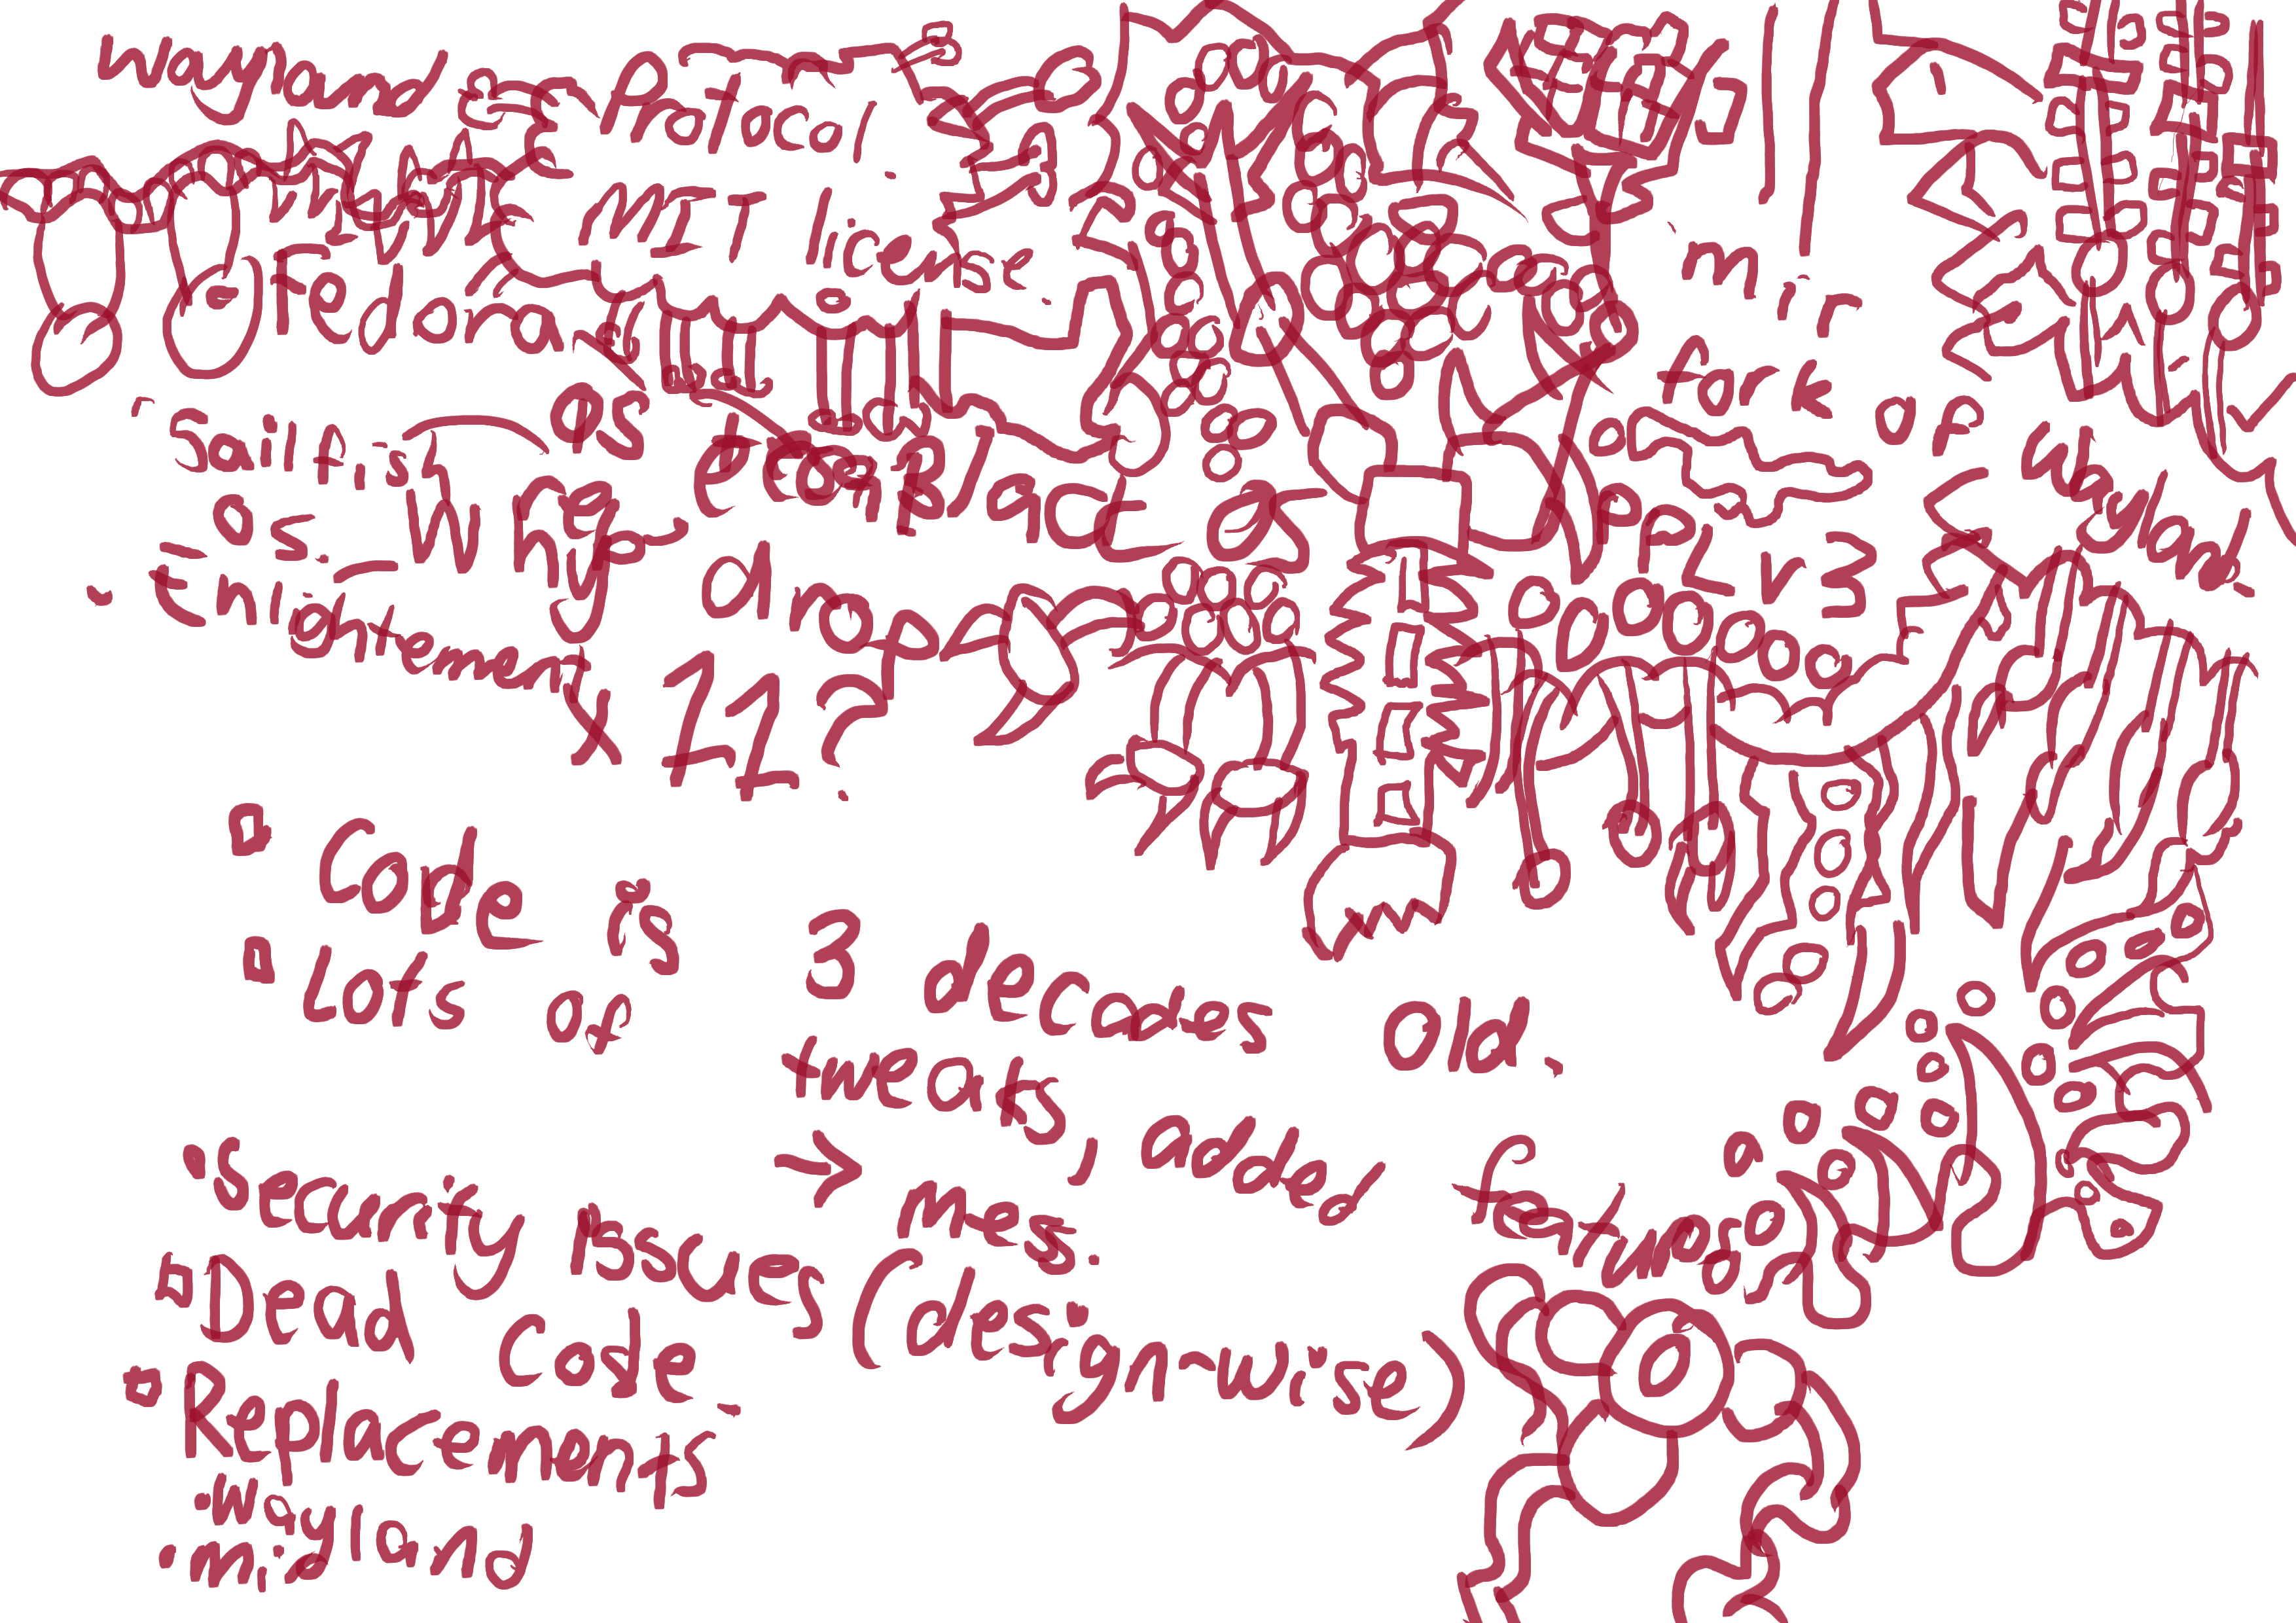 Wayland
Protocol.
MIT license.
Fedora.
Sailfish
OS.
Enlightenment
Why
as
a
X11?
Mir
fork of Wayland.
GPL v3
Code is 3 decades old.
Lots of tweaks, added features
-> mess.
Security issues (design-wise)
Dead code
Replacements
Wayland
Mir